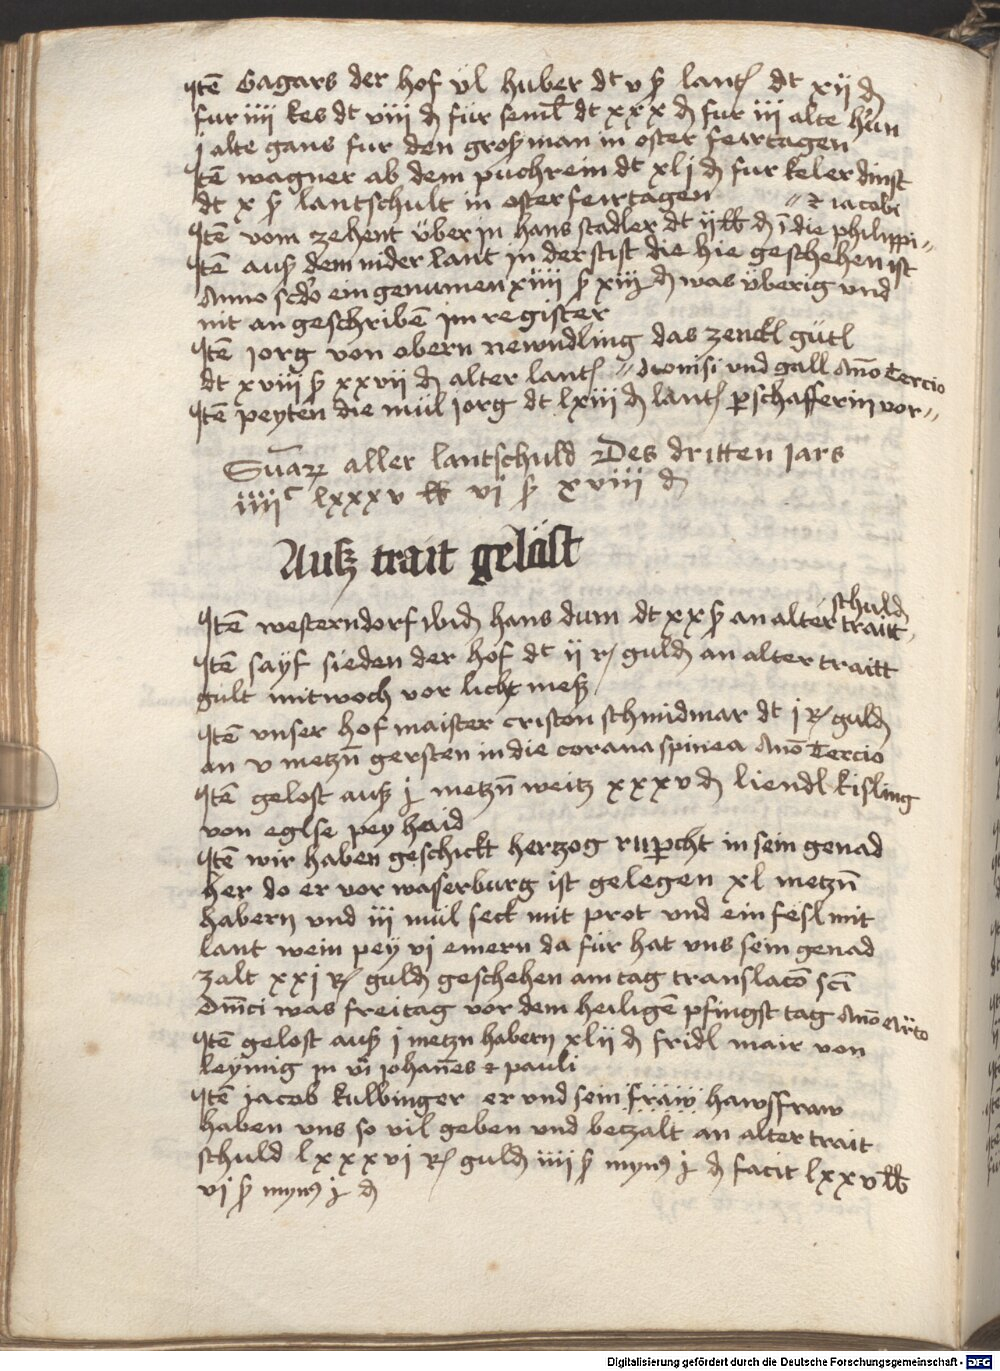 Itē Gagars der hof ül huber dt v ß lantſ dt xij ₰
fur iiij kes dt viij ₰ für seml dt xxx ₰ fur iij alte hün
j alte gans fur den grosman in oster feirtagen
Itē wagner ab dem puchrein dt xlj ₰ fur keler dinst
dt x ß lantschult in oster feirtagen
Itē vom zehent über in hans stadler dt ij lb ₰ ī die philippi
⁊ iacobi
Itē auß dem nider lant in der stift die hie geschehen ist
Anno scdo ein genumen xiiij ß xiij ₰ was überig und
nit an geschribē im register
Itē jorg von obern newndling das zenckl gütl
dt xviij ß xxvij ₰ alter lantſ dionisi vnd gall Anō Tercio
Itē peyten die mül jorg dt lxiij ₰ lantſ ꝑ schafferin vor
Sūaꝝ aller lantschuld Des dritten jars
iiijᶜ lxxxv lb vj ß xviij ₰
Auß trait gelöst
Itē westerndorf wid hans dum dt xx ß an alter traitt
schuld
Itē sayf sieden der hof dt ij rſ guld an alter traitt
gult mitwoch vor licht meß
Itē vnser hof maister criston schmidmar dt j rſ guld
an v metzn̄ gersten in die corana spinea Anō Tercio
Itē gelost auß j metzn̄ weitz xxxv ₰ liendl kisling
von eglse pey haid
Itē wir haben geschickt hertzog rupꝛcht in sein genad
her do er vor waserburg ist gelegen xl metzn̄
habern vnd iij mül seck mit prot vnd ein fesl mit
lant wein pey vj emern da für hat vns sein genad
zalt xxj rſ guld geschehen am tag translacō scī
Dm̄ci was freitag vor dem heiligē pfingst tag Anō q̄rto
Itē gelost auß j metzn habern xlij ₰ fridl mair von
leymig in vī johan̄es ⁊ pauli
Itē jacob kulbinger er vnd sein fraw hawsfraw
haben vns so vil geben vnd betzalt an alter trait
schuld lxxxvj rſ guld iiij ß mynꝰ j ₰ facit lxxv lb
vj ß mynꝰ j ₰
Digitalisierung gefördert durch die Deutsche Forschungsgemeinschaft - DFG